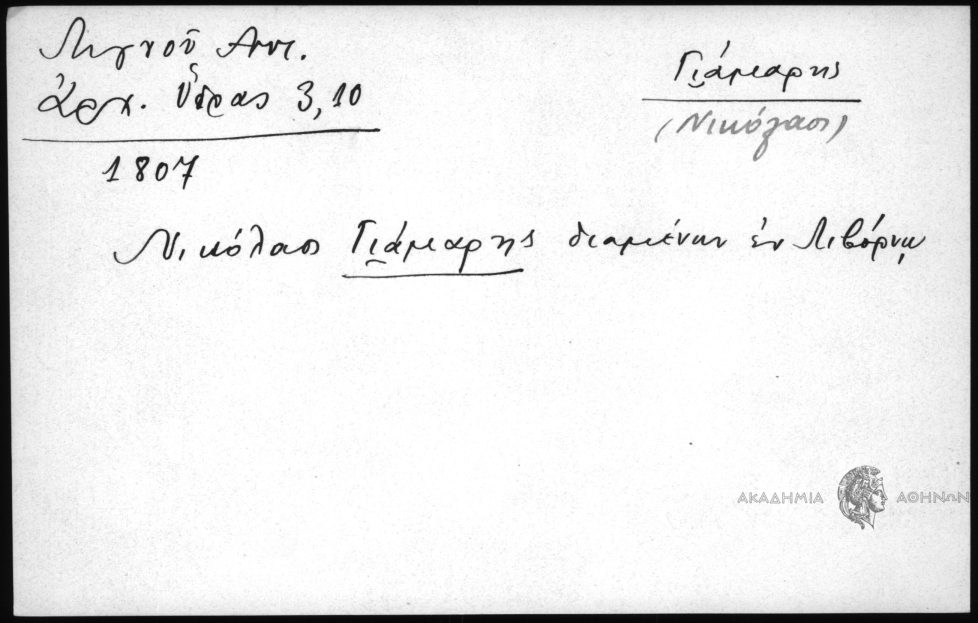 Λιγνοῦ Αντ.
Ἀρχ. Ὕδρας 3,10
Γιάμαρης
(Νικόλαος)
1807
Νικόλαος Γιάμαρης διαμένων ἐν Λιβόρνῳ
ΑΚΑΔΗΜΙΑ ΑΘΗΝΩΝ